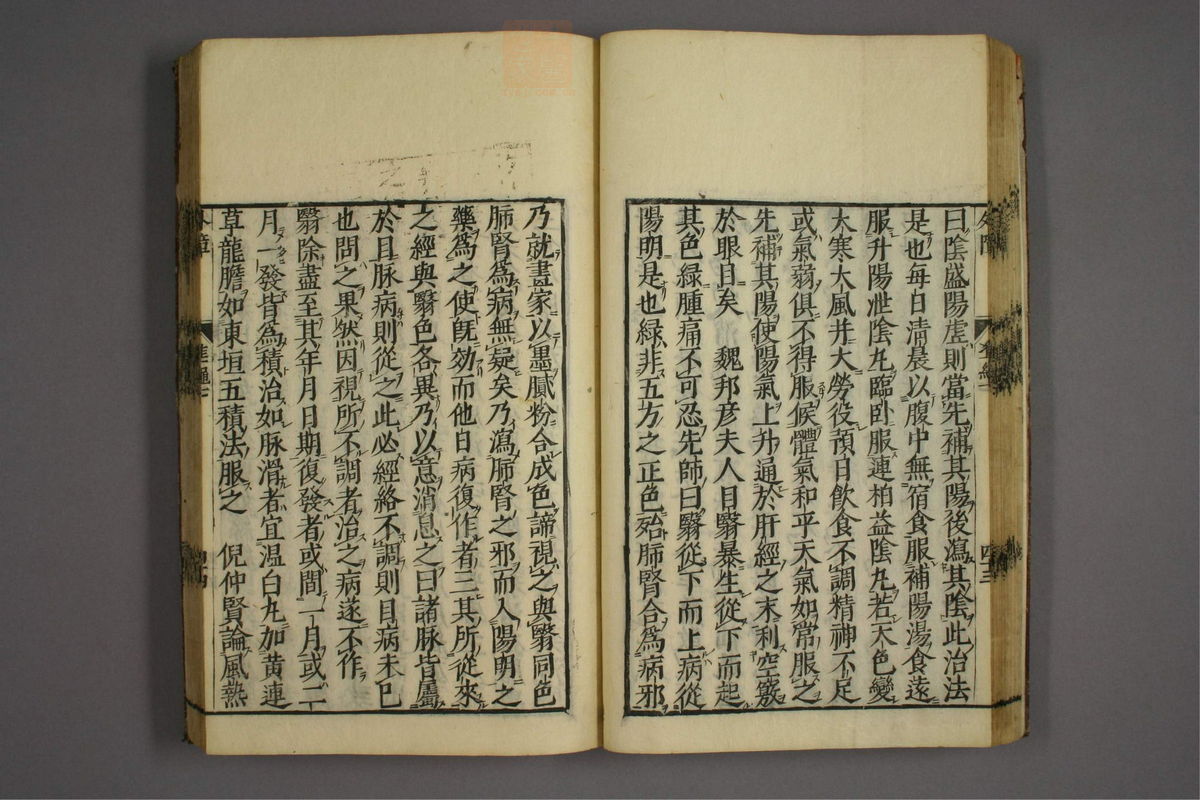 曰陰盛陽虛則當先補其陽後瀉其陰此治法
是也每日淸晨以腹中無宿食服補陽湯食遠
服升陽泄陰丸臨卧服連柏益陰丸若天色變
大寒大風并大勞役預日飮食不調精神不足
或氣弱俱不得服候體氣和乎天氣如常服之
先補其陽使陽氣上升通於肝經之末利空竅
於眼目矣　魏邦彦夫人目翳暴生從下而起
其色綠腫痛不可忍先師曰翳從下而上病從
陽明是也綠非五方之正色殆肺腎合爲病邪
乃就畫家以墨膩粉合成色諦視之與翳同色
肺腎爲病無疑矣乃瀉肺腎之邪而入陽明之
藥爲之使旣効而他日病復作者三其所從來
之經與翳色各異乃以意消息之曰諸脉皆屬
於目脉病則從之此必經絡不調則目病未已
也問之果然因視所不調者治之病遂不作
翳除盡至其年月日期復發者或間一月或二
月一發皆爲積治如脉滑者宜温白丸加黄連
草龍膽如東垣五積法服之　倪仲賢論風熱